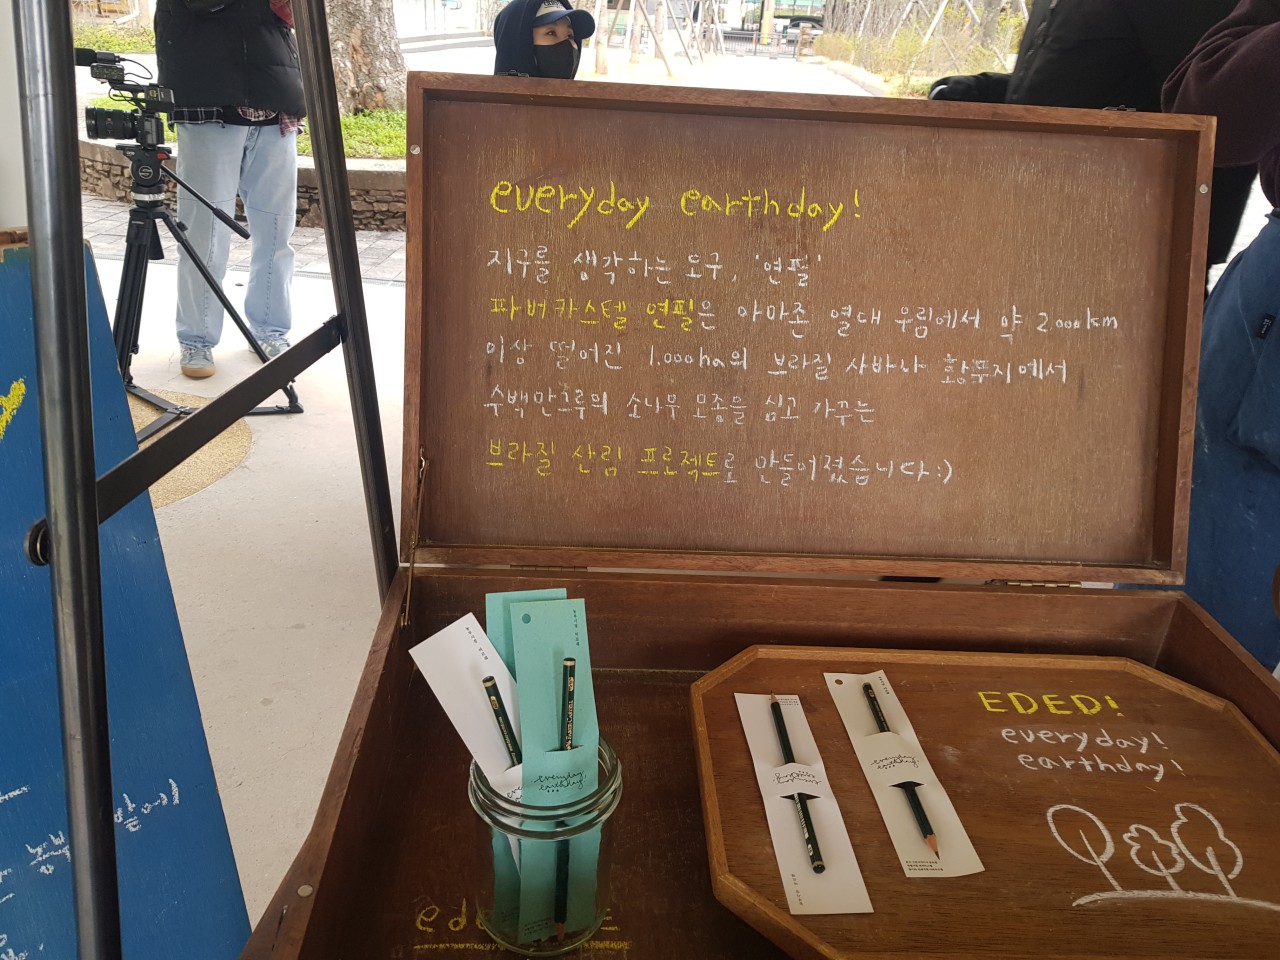 everyday earthday!
지구를 생각하는 도구, '연필'
파버카스텔 연필은 아마존 열대 우림에서 약 2000km
이상 떨어진 1.000ha의 브라질 사바나 황무지에서
수백만그루의 소나무 모종을 심고 가꾸는
브라질 산림 프로젝트로 만들어졌습니다:)
everyday
earthday
EDED!
everyday!
earthday!